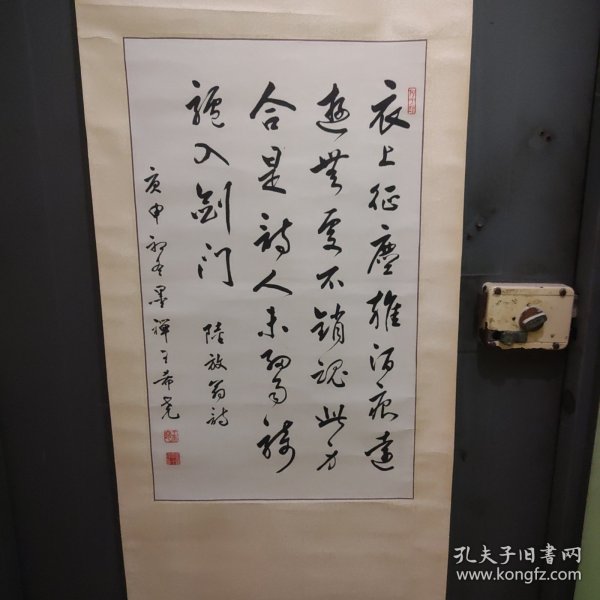 衣上征塵雜酒痕遠
遊無處不銷魂此身
合是詩人未細雨騎
驢入劍门
陸放翁詩
庚申初冬墨禪王希尧
孔夫子旧書网
www.kongfz.com